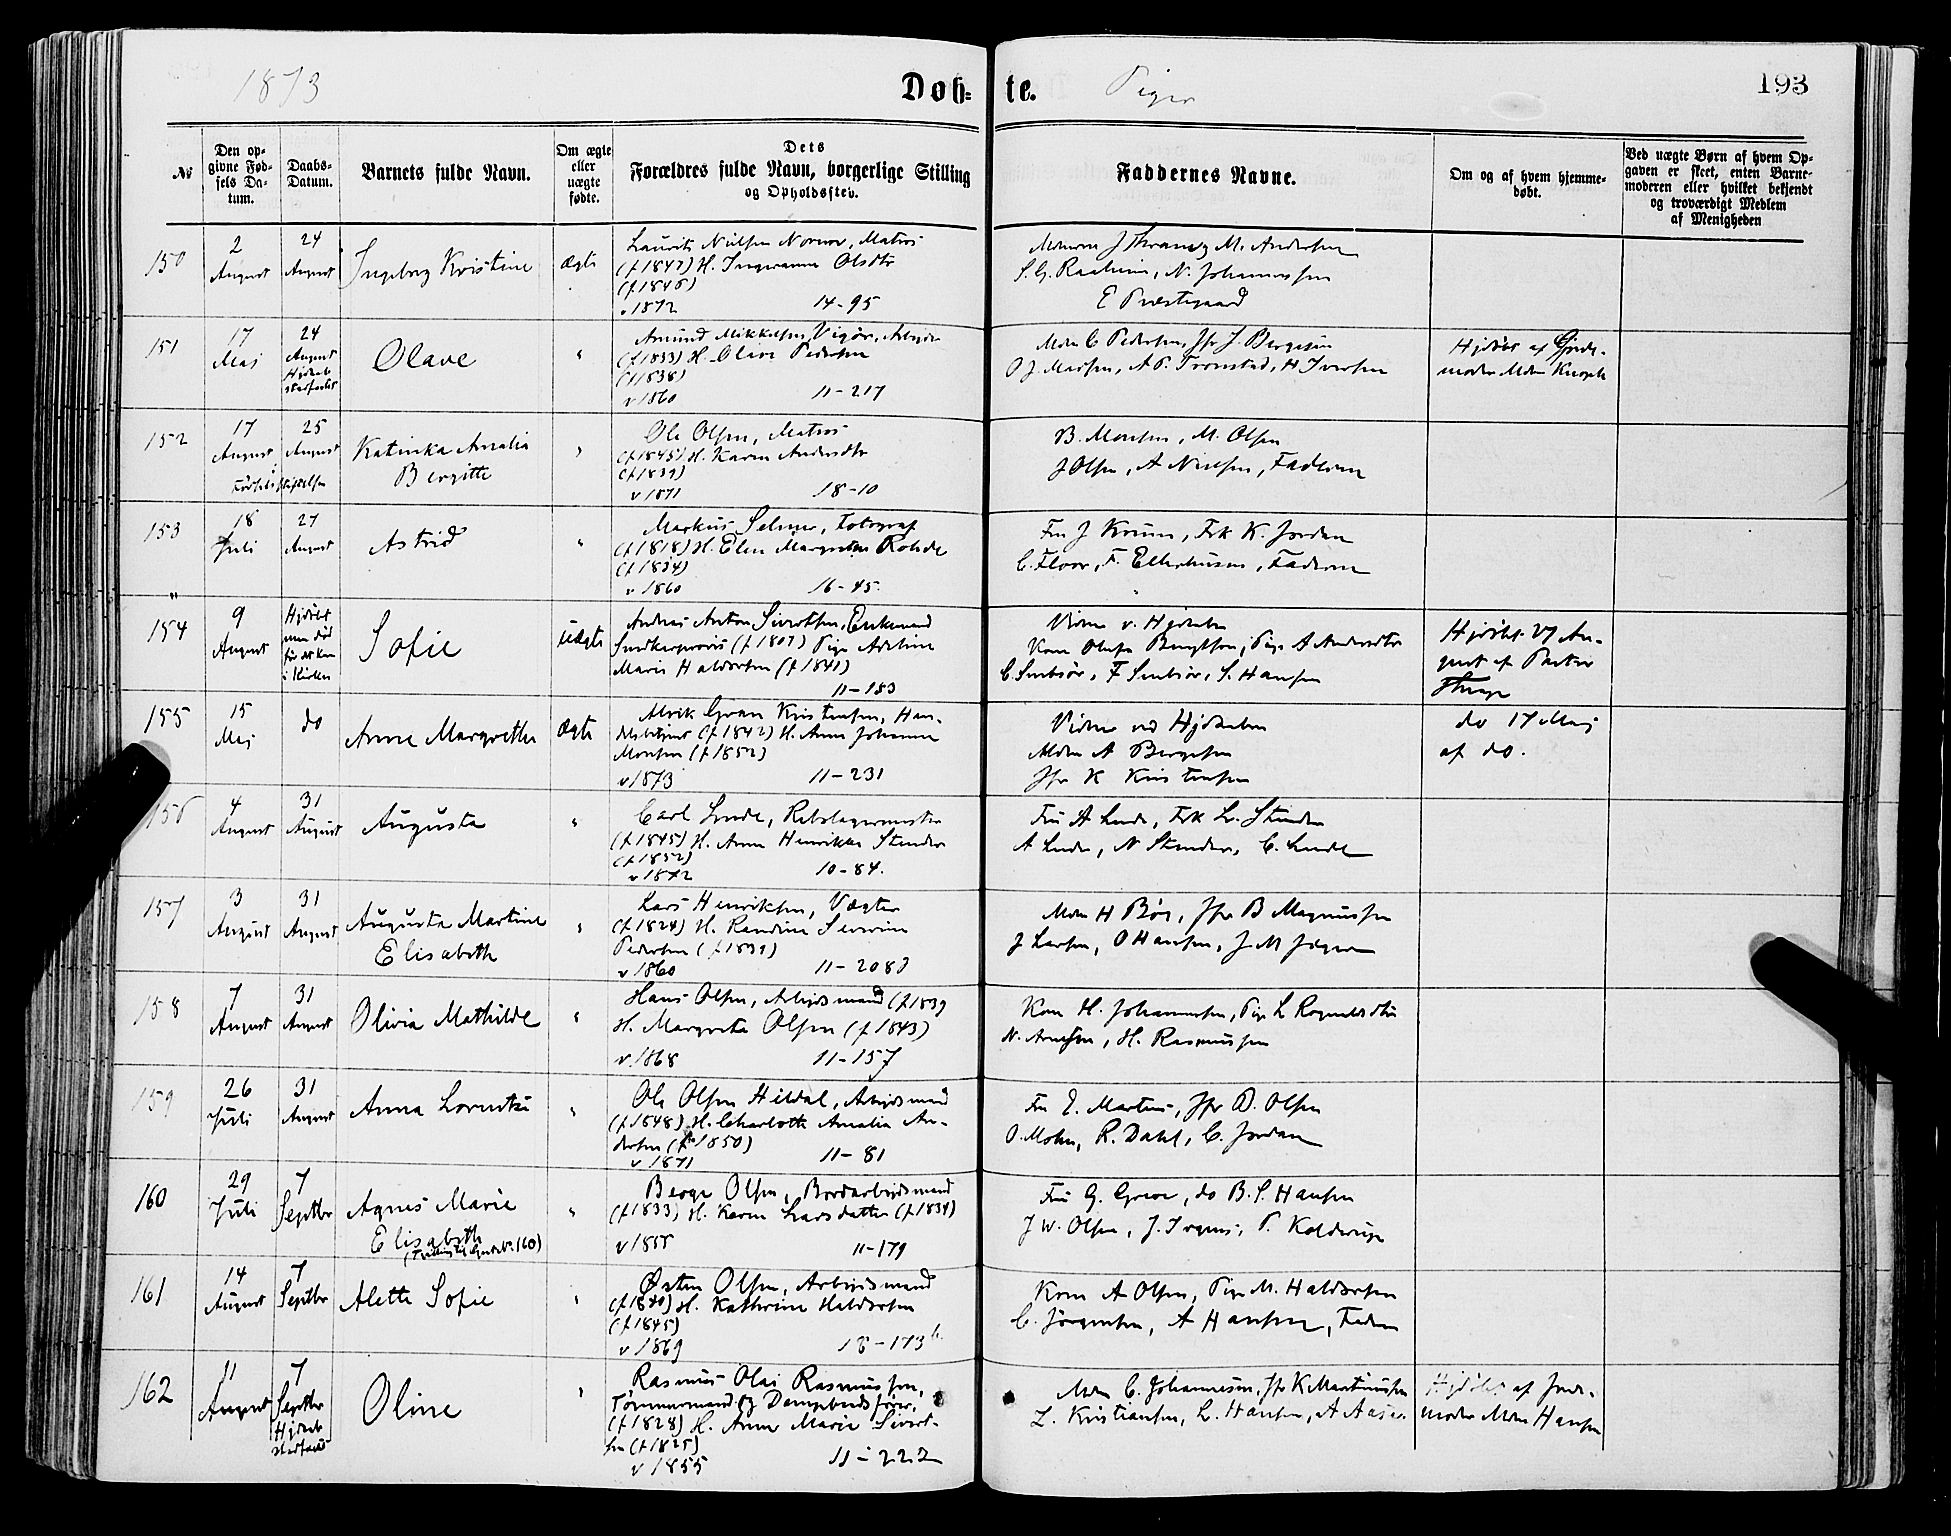 1873
Døb-te.
Piger
193
№
Den op-
givne Fød-
sels Da-
tum.
Daabs-
Datum.
Barnets fulde Navn.
Om ægte
eller
uægte
fødte.
Dets
Forældres fulde Navn, borgerlige Stilling
og Opholdssted.
Faddernes Navne.
Om og af hvem hjemme-
døbt.
Ved uægte Børn af hvem Op-
gaven er skeet, enten Barne-
moderen eller hvilket bekjendt
og troværdigt Medlem
af Menigheden
150
2
August
24
August
Ingeborg Kristine
Ægte
Laurits Nielsen, Matros
(f 1847) H. Olsdtr
(f 1846)
1872 14-95
M. Andersen
N. Johannessen
E Præstegaard
151
17
Maj
24
August
Hjdaab
stadfæstet
Olave
"
Amund Mikkelsen
(f 1833) H. Olave Pedersen
(f 1838)
v 1860 11-217
Mdm C Pedersen, Jfr J. Bergesen
O J. Madsen, A P. Tronstad, H Iversen
Hjdøbt af Gjorde-
moder Mdm
152
17
August
25
August
Fødselsstiftelsen
Katinka Amalia
Bergitte
"
Ole Olsen, Matros
(f 1845) H. Karen Andersdtr
(f 1839)
v 1871 18-10
B. Monsen, M. Olsen
J Olsen, A Nielsen, Faderen
153
18
Juli
27
August
Astrid
"
Markus Selmer, Fotograf
(f 1818) H. Elen Margrethe Rohde
(f 1834)
v 1860 16-45.
Fru J Krum, Frk K. Jordan
C. Floor, F. Ellerhusen, Faderen
"
154
9
August
Hjdøbt
men død
før det kom
i Kirken
Sofie
Uægte
Andreas Anton Sivertsen, Enkemand
(f 1807) Pige Adeline
Marie Haldorsen (f 1841)
11-183
Vidner v. Hjdaaben
Kone Olufa Bengtson, Pige A Andersdtr
S. Hansen
Hjdøbt 27 Au-
gust af Pastor
155
15
Maj
do
Anne Margrethe
Ægte
Alrik Gran Kristensen, Han-
delsbetjent (f 1842) H. Anne Johanne
Monsen (f 1852)
v 1873 11-231
Vidner ved Hjdaaben
Mdm A Bergesen
Jfr K Kristensen
do 17 Maj
af do.
156
4
August
31
August
Augusta
"
Carl Lunde, Rebslagermester
(f 1845) H. Anne Henrikke Stender
(f 1852)
v 1872 10-84.
Fru A Lunde, Frk L. Stender
A Lunde, N Stender, C. Lunde
157
3
August
31
August
Augusta Martine
Elisabeth
"
Lars Henriksen, Vægter
(f 1824) H. Randine Severine
Pedersen (f 1839)
v 1860 11-208
Mdm H Bøe, Jfr B Magnussen
J Larsen, O Hansen, J M Jæger
158
7
August
31
August
Olivia Mathilde
"
Hans Olsen, Arbejdsmand (f 1839
H. Margrete Olsen (f 1843)
v. 1868 11-157
Kone H. Johannesen, Pige L Rognaldsdtr
N. Arnesen, H. Rasmussen
159
26
Juli
31
August
Anna Lorentse
"
Ole Olsen Hildal, Arbejdsmand
(f 1848) H. Charlotte Amalia An-
dersen (f 1850)
v 1871 11-81
Fru E. Martens, Jfr D. Olsen
O. Mohn, R. Dahl, C. Jordan
160
29
Juli
7
Septbr
Agnes Marie
Elisabeth
"
Berge Olsen, Bordarbejdsmand
(f 1833) H. Karen Larsdatter (f 1834)
v 1855 11-179
Fru G. Greve, do B. S. Hansen
J W. Olsen, J. Irgens, P. Kolderup
161
14
August
7
Septbr
Alette Sofie
"
Østen Olsen, Arbejdsmand
(f 1840) H. Kathrine Haldorsen
(f 1845)
v 1869 18-173 b.
Kone A Olsen, Pige M. Haldorsen
C. Jørgensen, A Hansen, Faderen
162
11
August
7
Septbr
Hjdaab
stadfæst
Oline
"
Rasmus Olai Rasmussen,
Tømmermand og Dampbaadsfører,
(f 1828) H. Anne Marie Sivert-
sen (f 1825)
v 1855 11-222
Mdm C. Johannesen, Jfr K Martinussen
L. Kristiansen, L. Hansen, A Aasen
Hjdøbt af Jord-
moder Mdm Hansen